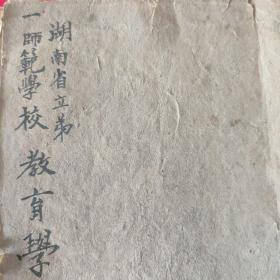 湖南省立弟
一師範學校 教育學